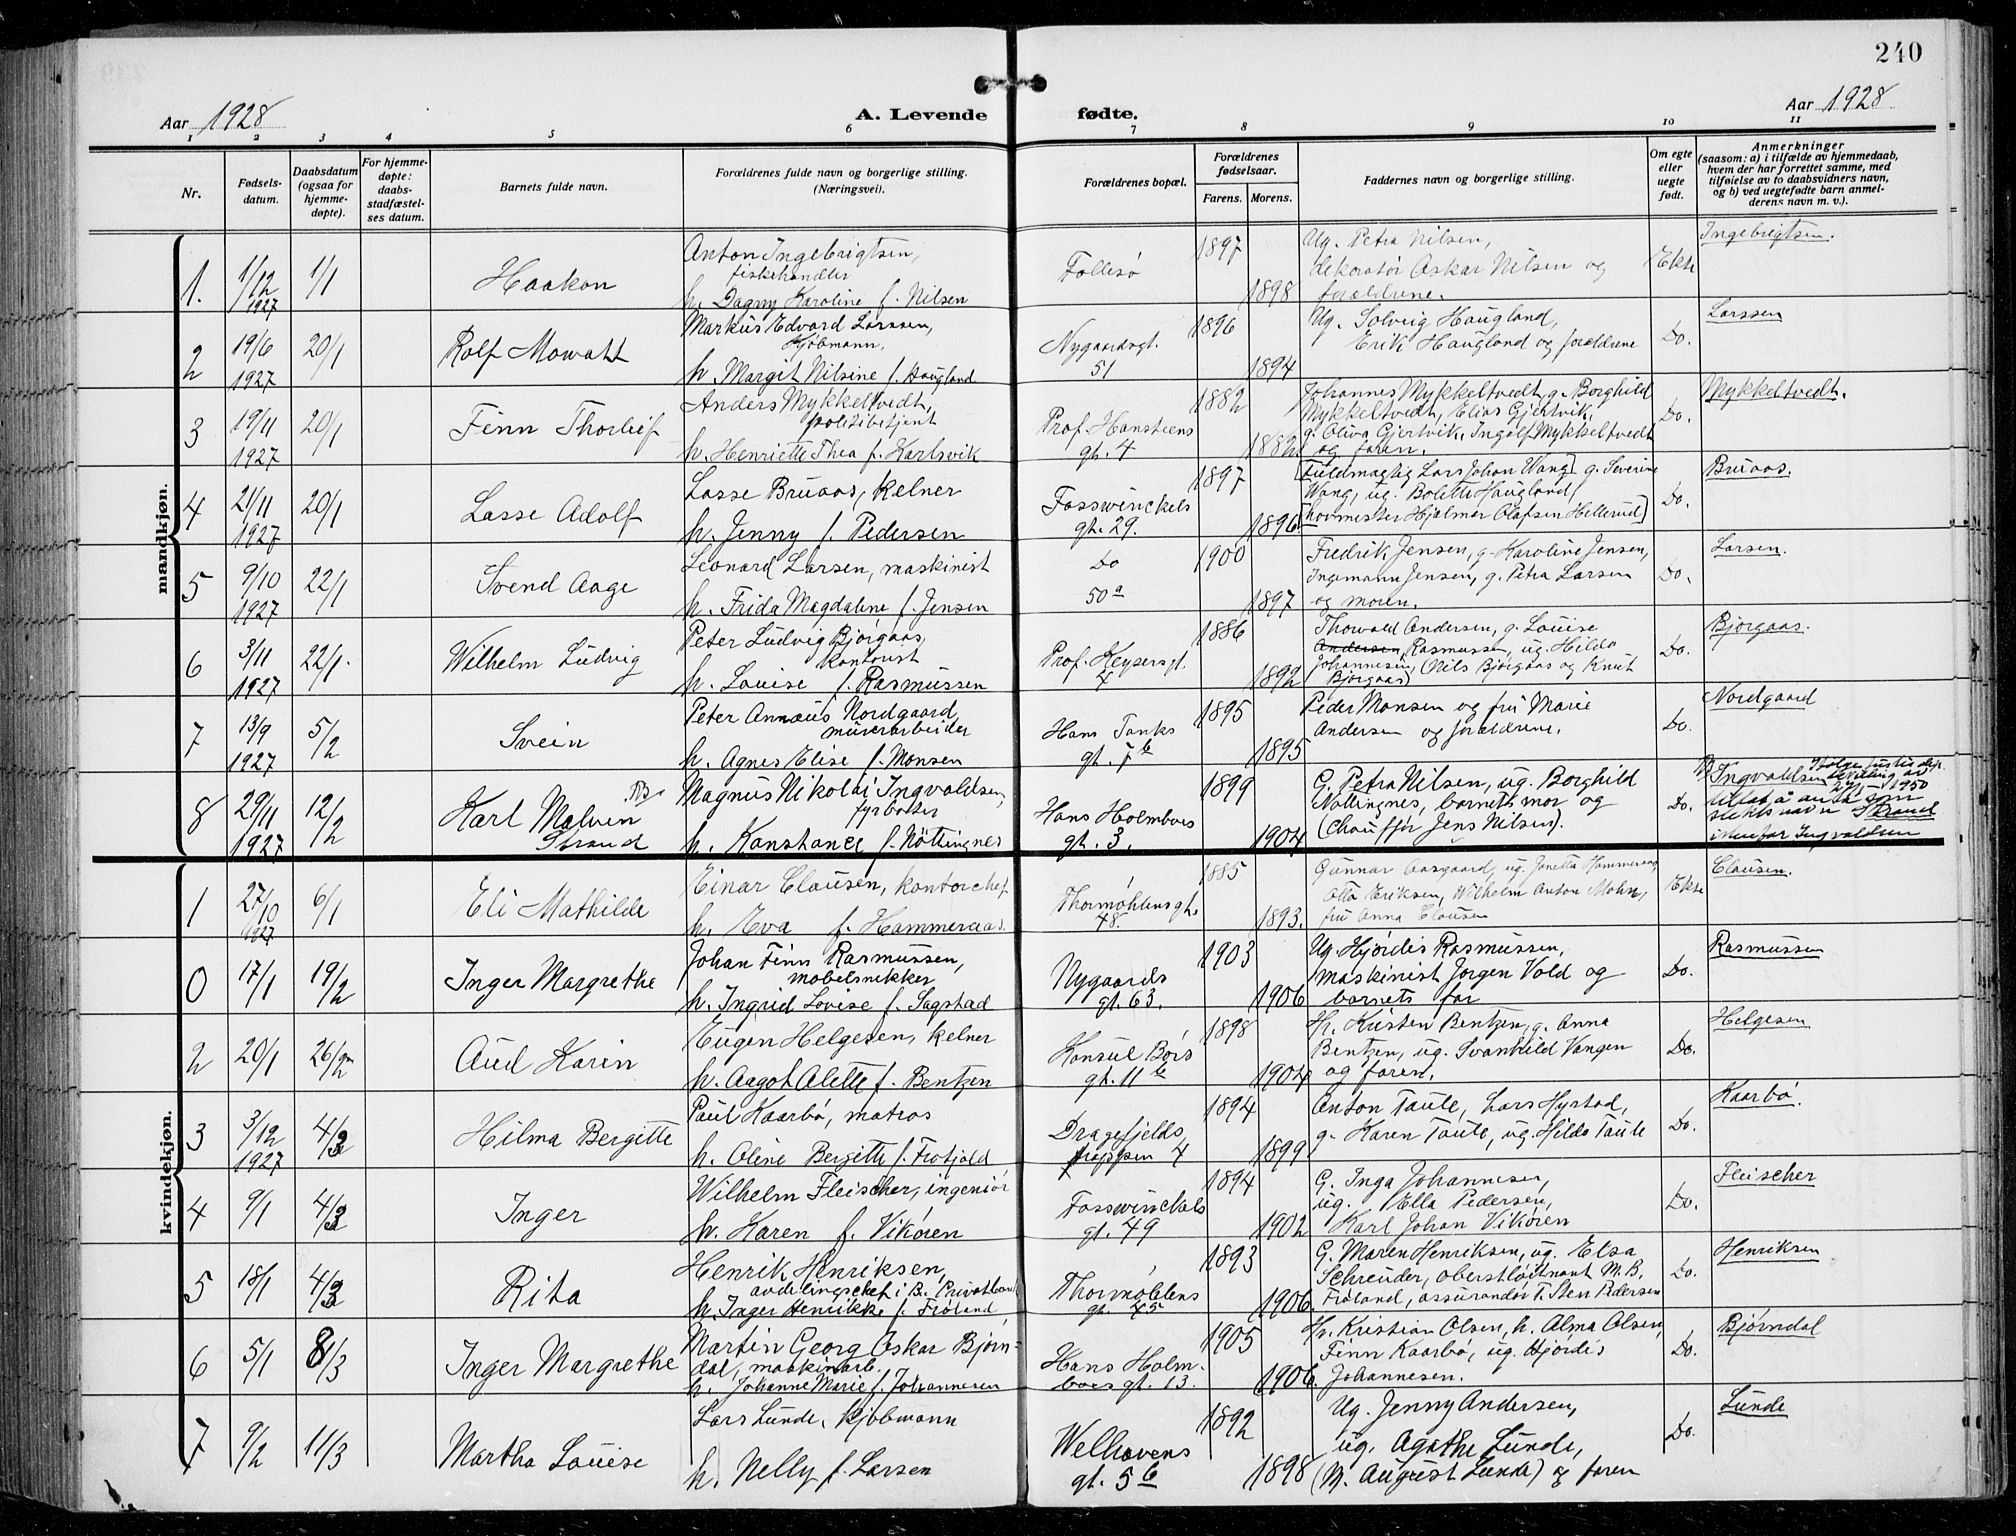 240
Aar 1928
A. Levende fødte.
Aar 1928
1 2 3 4 5 6 7 8 9 10 11
Nr.
Fødsels-
datum.
Daabsdatum
(ogsaa for
hjemme-
døpte).
For hjemme-
døpte:
daabs-
stadfæstel-
ses datum.
Barnets fulde navn.
Forældrenes fulde navn og borgerlige stilling.
(Næringsvei).
Forældrenes bopæl.
Forældrenes
fødselsaar.
Farens. Morens.
Faddernes navn og borgerlige stilling.
Om egte
eller
uegte
født.
Anmerkninger
(saasom: a) i tilfælde av hjemmedaab,
hvem der har forrettet samme, med
tilføielse av to daabsvidners navn,
og b) ved uegtefødte barn anmel-
derens navn m. v.).
mandkjøn.
1. 1/12 1927 1/1 Haakon
Anton Ingebrigtsen,
fiskehandler
h. Dagny Karoline f. Nilsen
Follesø
1897 1898
Ug. Petra Nilsen,
dekoratør Oskar Nilsen og
forældrene.
Ekte
Ingebrigtsen.
2 19/6 1927 20/1 Rolf Mowatt
Markus Edvard Larssen,
kjøbmann,
h. Margit Nilsine f. Haugland
Nygaardsgt.
51
1896 1894
Ug. Solveig Haugland,
Erik Haugland og forældrene
Do.
Larssen
3 19/11 1927 20/1 Finn Thorleif
Anders Mykkeltvedt,
politibetjent
h. Henriette Thea f. Karlsvik
Prof. Hansteens
gt. 4
1882 1882
Johannes Mykkeltvedt, g. Borghild
Mykkeltvedt, Elias Gjertvik,
g. Oliva Gjertvik, Ingolf Mykkeltvedt
og faren.
Do.
Mykkeltvedt.
4 21/11 1927 20/1 Lasse Adolf
Lasse Bruaas, kelner
h. Jenny f. Pedersen
Fosswinckels
gt. 29.
1897 1896
[Fuldmagtig Lars Johan Wang] g. Severine
Wang, ug. Bolette Haugland,
[hovmester Hjalmar Olafsen Hellerud]
Do.
Bruaas.
5 9/10 1927 22/1 Svend Aage
Leonard Larsen, maskinist
h. Frida Magdalene f. Jensen
Do
50a
1900 1897
Fredrik Jensen, g. Karoline Jensen,
Ingemann Jensen, g. Petra Larsen
og moren.
Do.
Larsen.
6 3/11 1927 22/1. Wilhelm Ludvig
Peter Ludvig Bjørgaas,
kontorist
h. Louise f. Rasmussen
Prof. Keysersgt.
4
1886 1892
Thorvald Andersen, g. Louise
Andersen, Rasmussen, ug. Hilda
Johannesen, (Nils Bjørgaas og Knut
Bjørgaas)
Do.
Bjørgaas.
7 13/9 1927 5/2 Svein
Peter Annæus Nordgaard,
murerarbeider
h. Agnes Elise f. Monsen
Hans Tanks
gt. 7b
1895 1895
Peder Monsen og fru Marie
Andersen og forældrene.
Do.
Nordgaard
8 29/11 1927 12/2 Karl Malvin
Strand
Magnus Nikolai Ingvaldsen,
fyrbøter
h. Konstance f. Nøttingnes
Hans Holmboes
gt. 3.
1899 1904
G. Petra Nilsen, ug. Borghild
Nøttingnes, barnets mor og
(Chauffør Jens Nilsen).
Do.
Ingvaldsen
bevilling av
1950
tillatt å anta som
slektsnavn Strand
istenfor Ingvaldsen
kvindekjøn.
1 27/10 1927 6/1 Eli Mathilde
Einar Clausen, kontorchef
h. Eva f. Hammeraas.
Thormøhlensgt.
48.
1885 1893.
Gunnar Aasgaard, ug. Janetta Hammeraas,
Otto Eriksen, Wilhelm Anton Mohn,
fru Anna Clausen
Ekte
Clausen.
0 17/1 19/2 Inger Margrethe
Johan Finn Rasmussen,
møbelsnekker
h. Ingrid Lovise f. Sagstad
Nygaards
gt. 63.
1903 1906
Ug. Hjørdis Rasmussen,
maskinist Jørgen Vold og
barnets far
Do.
Rasmussen
2 20/1 26/2 Aud Karin
Eugen Helgesen, kelner
h. Aagot Alette f. Bentzen
Konsul Børs
gt. 11b
1898 1904
Hr. Kristen Bentzen, g. Anna
Bentzen, ug. Svanhild Vangen
og faren.
Do.
Helgesen
3 3/12 1927 4/3 Hilma Bergitte
Paul Kaarbø, matros
h. Oline Bergitte f. Frotjold
Dragefjelds
trappen 4
1894 1899
Anton Taule, Lars Hystad,
g. Karen Taule, ug. Hilda Taule
Do.
Kaarbø.
4 9/1 4/3 Inger
Wilhelm Fleischer, ingeniør
h. Karen f. Vikøren
Fosswinckels
gt. 49
1894 1902
G. Inga Johannesen,
ug. Ella Pedersen,
Karl Johan Vikøren
Do.
Fleischer
5 18/1 4/3 Rita
Henrik Henriksen,
avdelingschef i B. Privatbank
h. Inger Henrikke f. Frøland
Thormøhlens
gt. 45
1893 1906
G. Maren Henriksen, ug. Elsa
Schreuder, oberstløitnant M. B.
Frøland, assurandør T. Sten Pedersen
Do.
Henriksen
6 5/1 8/3 Inger Margrethe
Martin Georg Oskar Bjørn-
dal, maskinarb.
h. Johanne Marie f. Johannesen
Hans Holm-
boes gt. 13.
1905 1906.
Hr. Kristian Olsen, h. Alma Olsen,
Finn Kaarbø, ug. Hjørdis
Johannesen.
Do.
Bjørndal
7 9/2 11/3 Martha Louise
Lars Lunde, kjøbmann
h. Nelly f. Larsen
Welhavens
gt. 5b
1892 1898
Ug. Jenny Andersen,
ug. Agathe Lunde,
(M. August Lunde) og faren
Do.
Lunde